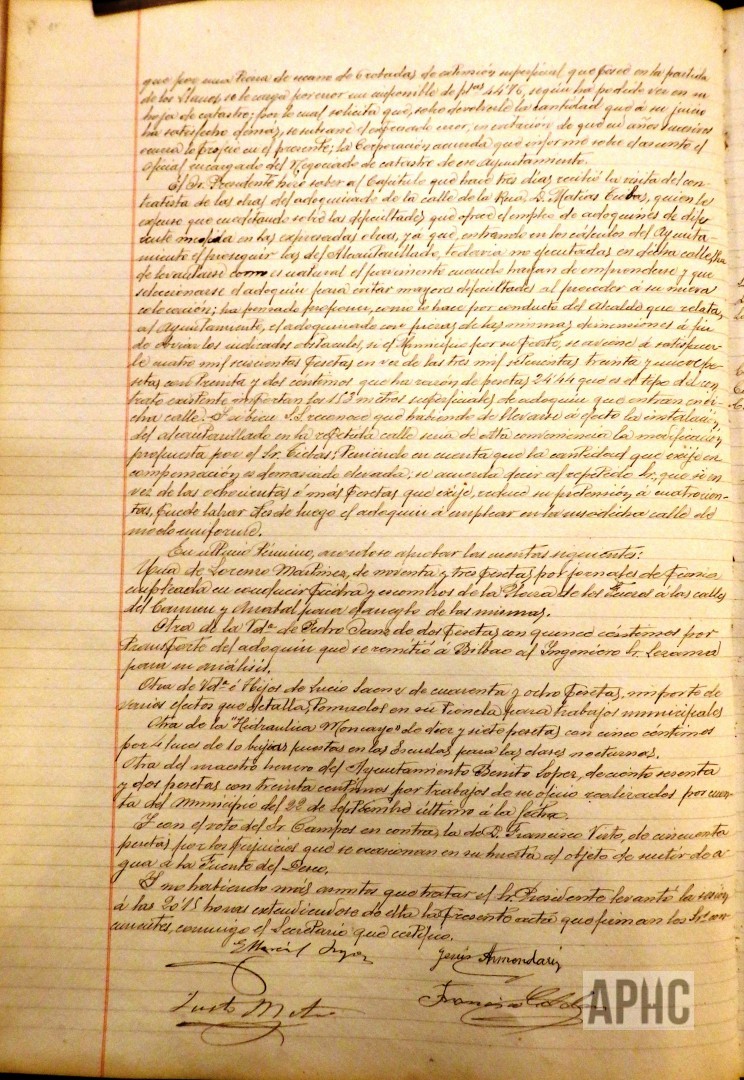 que por una pieza de secano de 6 robadas de extensión superficial, que posee en la partida
de los Llanos, se le carga por error un imponible de ptas 44'76, según ha podido ver en su
hoja de catastro; por lo cual solicita que, sobre devolverle la cantidad que á su juicio
ha satisfecho demás, se subsane el expresado error, en evitación de que en años sucesivos
ocurra lo propio que en el presente; la Corporación acuerda que informe sobre el asunto el
Oficial encargado del Negociado de catastro de ese Ayuntamiento.
El Sr. Presidente hace saber al Capítulo que hace tres días recibió la visita del con-
tratista de las obras del adoquinado de la calle de la Rua, D. Matías Cubas, quien les
expuso que meditando sobre las dificultades que ofrece el empleo de adoquines de dife-
rente medida en las expresadas obras, ya que, entrando en los cálculos del Ayunta-
miento el proseguir las del Alcantarillado, todavía no ejecutadas en dicha calle, ha
de levantarse como es natural el pavimento cuando hayan de emprenderse y que
seleccionarse el adoquin para evitar mayores dificultades al proceder á su nueva
colocación; ha pensado proponer, como lo hace por conducto del Alcalde que relata,
al Ayuntamiento, el adoquinado con piezas de las mismas dimensiones á fin
de obviar los indicados obstáculos, si el Municipio por su parte, se aviene á satisfacer-
le cuatro mil seiscientas pesetas en vez de las tres mil setecientas treinta y nueve pe-
setas con treinta y dos céntimos que ha razón de pesetas 24'44 que es el tipo del con-
trato existente importan los 153 metros superficiales de adoquin que entran en di-
cha calle. Si bien S.S. reconoce que habiendo de llevarse á efecto la instalación
del alcantarillado en la repetida calle sería de alta conveniencia la modificación
propuesta por el Sr. Cubas; teniendo en cuenta que la cantidad que exije en
compensación es demasiado elevada; se acuerda decir al repetido Sr. que si en
vez de las ochocientas ó más pesetas que exije, reduce su pretensión á cuatrocien-
tas, puede labrar desde luego el adoquin á emplear en la susodicha calle de
modo uniforme.
En último término, acordose aprobar las cuentas siguientes:
Una de Lorenzo Martinez, de noventa y tres pesetas por jornales de
empleada en conducir piedra y escombros de la Plaza de los Fueros á las calles
del Carmen y Arrabal para el arreglo de las mismas.
Otra de la Vda de Pedro Sanz de dos pesetas con quince céntimos por
transporte del adoquin que se remitió á Bilbao al Ingeniero Sr. Lezama
para su análisis.
Otra de Vda é Hijos de Lucio Saenz de cuarenta y ocho pesetas, importe de
varios efectos que detalla, tomados en su tienda para trabajos municipales
Otra de la "Hidraulica Moncayo" de diez y siete pesetas con cinco céntimos
por 4 luces de 10 bujías puestas en las Escuelas para las clases nocturnas.
Otra del maestro herrero del Ayuntamiento Benito Lopez, de ciento sesenta
y dos pesetas con treinta centimos por trabajos de su oficio realizados por cuen-
ta del Municipio del 22 de Septiembre último á la fecha.
Y con el voto del Sr. Campos en contra, la de D. Francisco Vixto, de cincuenta
pesetas por los perjuicios que se ocasionan en su huerta al objeto de surtir de a-
gua á la Fuente del Poseo.
Y no habiendo más asuntos que tratar el Sr. Presidente levantó la sesión
á las 20'15 horas extendiéndose de ella la presente acta que firman los Sres con-
currentes, conmigo el Secretario que certifico.
Jesús Armendariz
Justo
Francisco
APHC